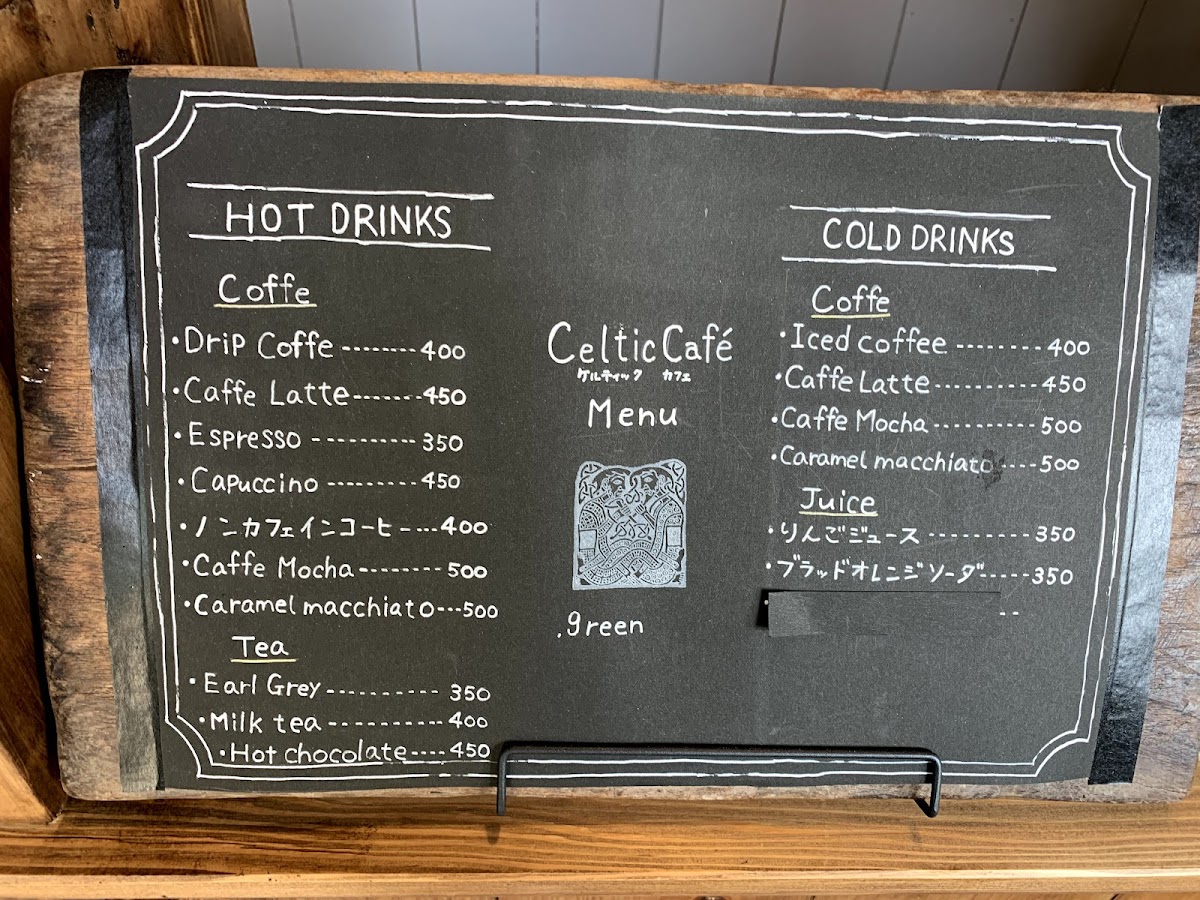 HOT DRINKS
Coffe
・Drip Coffe -------- 400
・Caffe Latte ------- 450
・Espresso ---------- 350
・Capuccino --------- 450
・ノンカフェインコーヒー ---- 400
・Caffe Mocha -------- 500
・Caramel macchiato --- 500
Tea
・Earl Grey ---------- 350
・Milk tea ----------- 400
・Hot chocolate ---- 450
Celtic Café
ケルティック カフェ
Menu
.green
COLD DRINKS
Coffe
・Iced coffee -------- 400
・Caffe Latte ---------- 450
・Caffe Mocha ---------- 500
・Caramel macchiato ---- 500
Juice
・りんごジュース ---------- 350
・ブラッドオレンジソーダ ----- 350